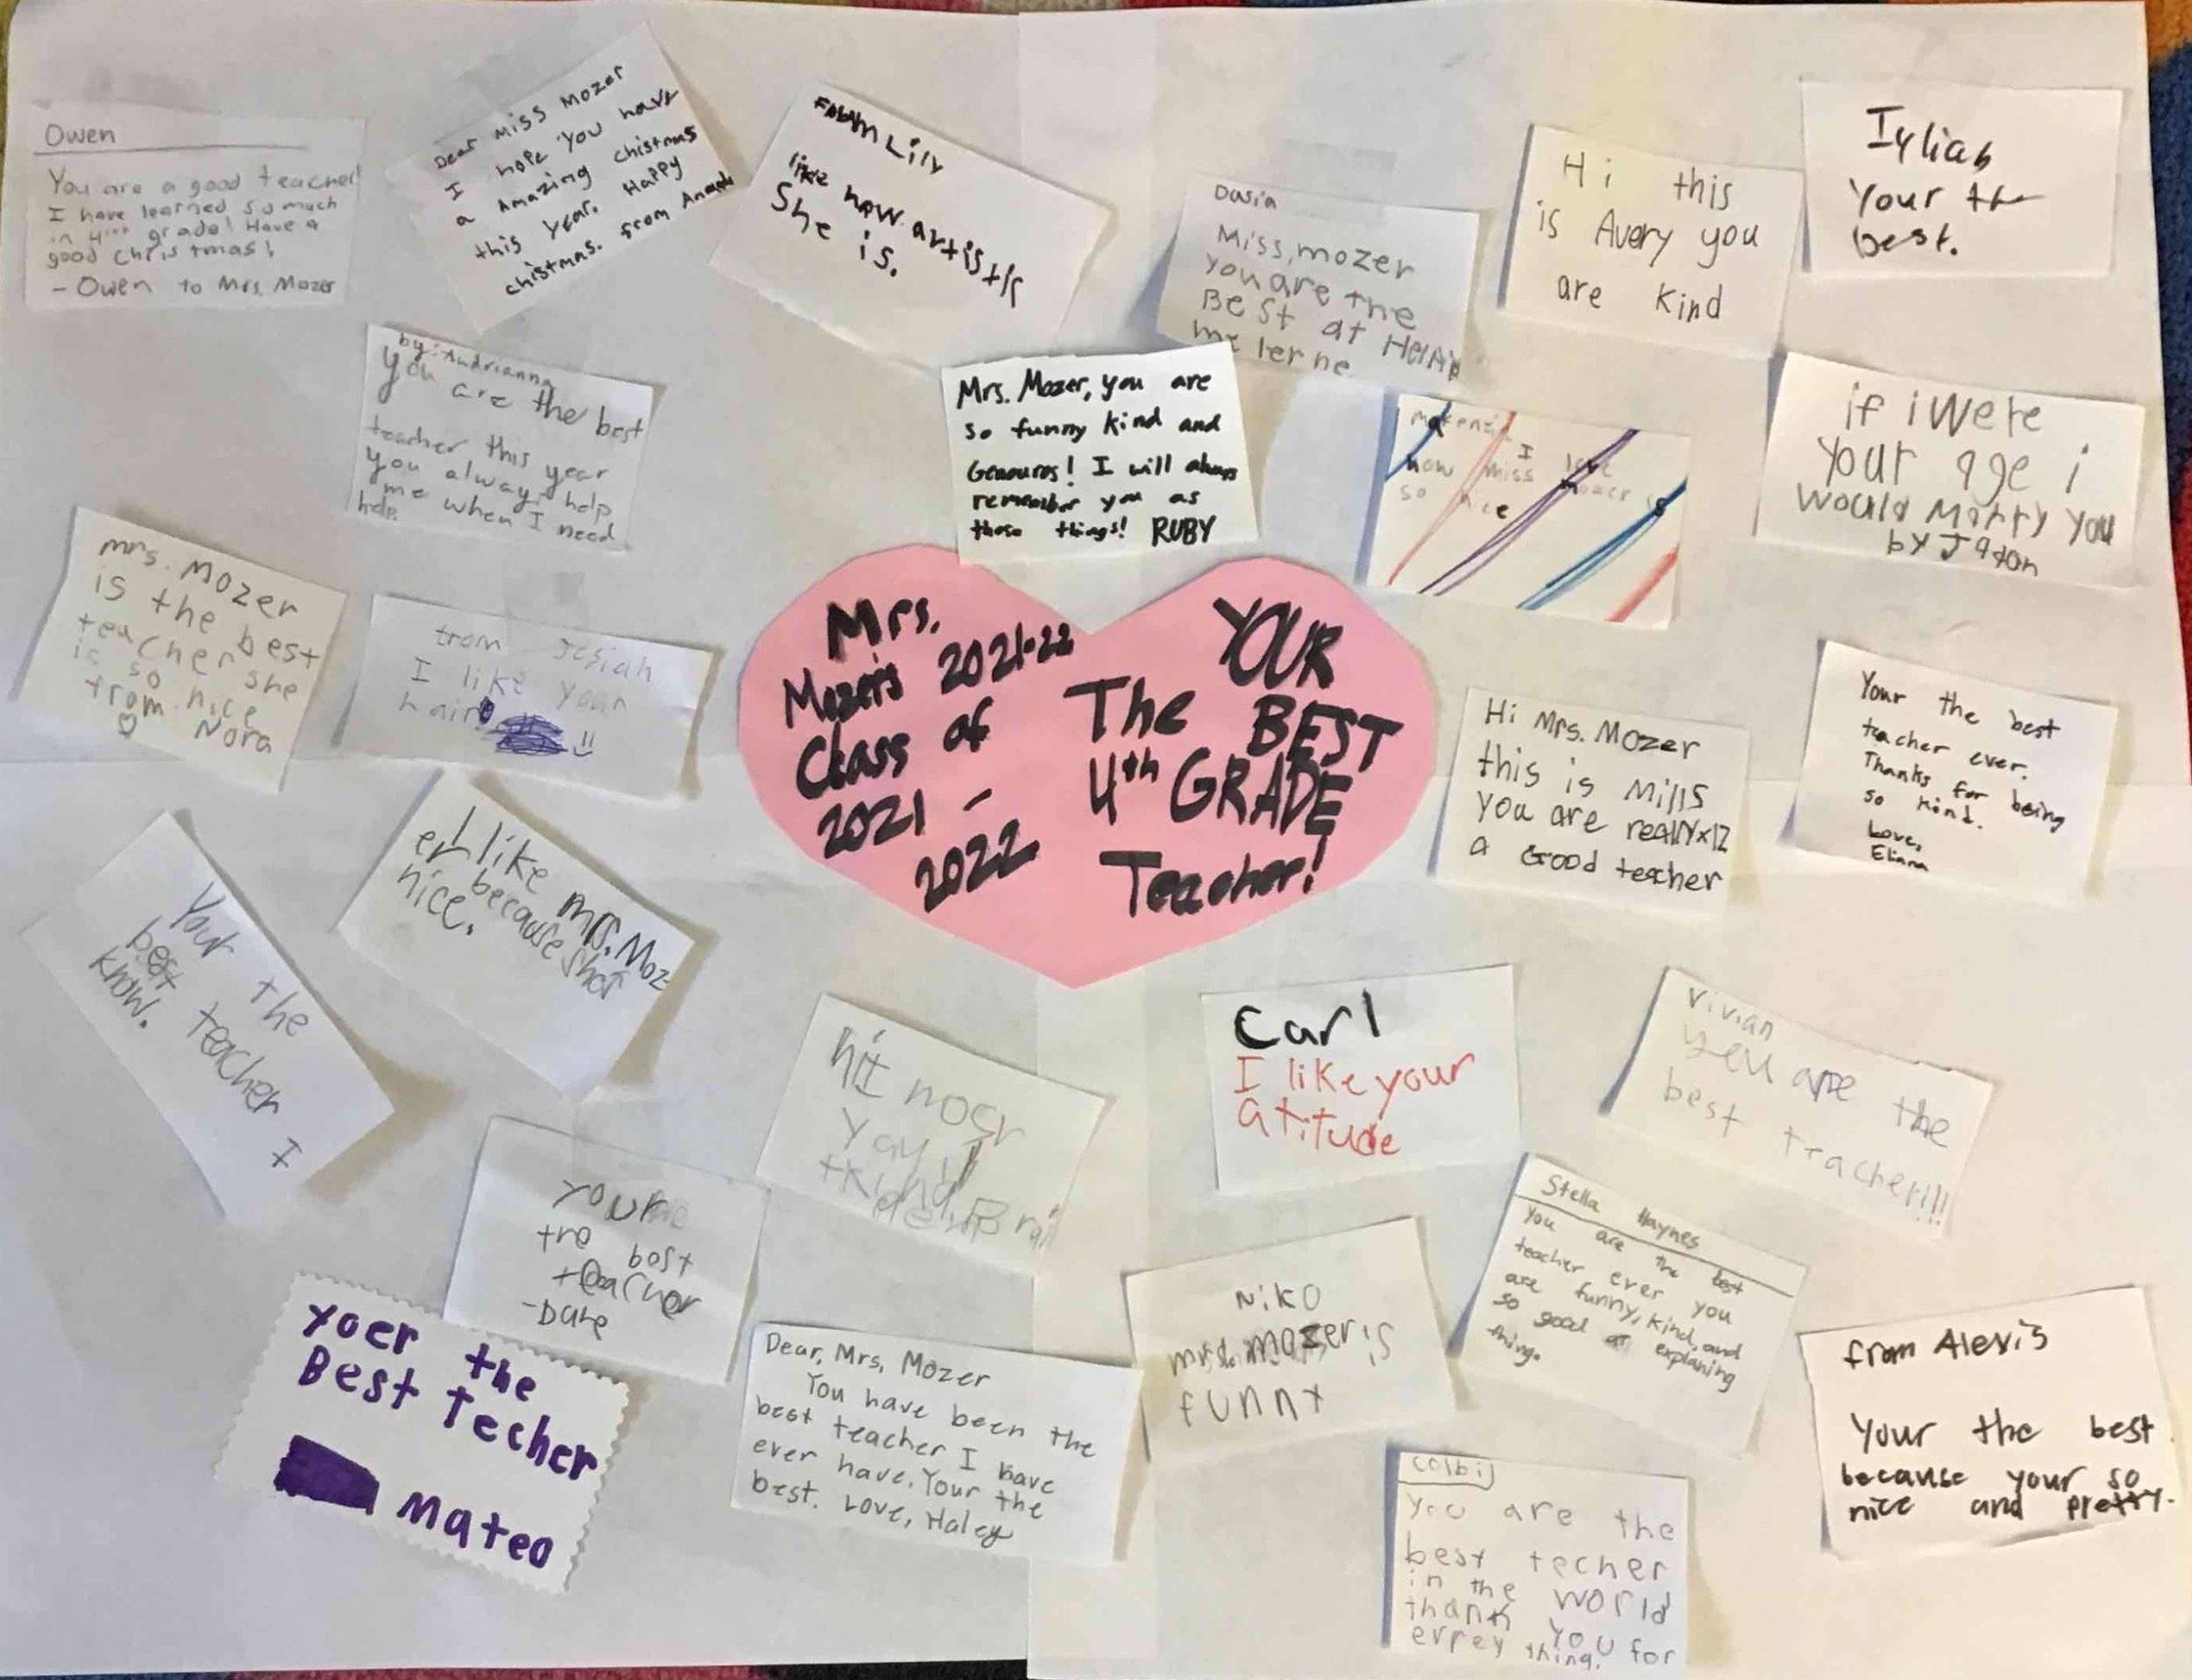 Owen
You are a good teacher!
I have learned so much
in 4th grade! Have a
good Christmas!
- Owen to Mrs. Mozer
Dear Miss Mozer
I hope you have
a amazing chistmas
this year. Happy
chistmas. from
Lily
like how artistic
She is.
Dasia
Miss, mozer
you are the
BeSt at
me lerne
Hi this
is Avery you
are kind
Iyliah
Your the
best.
by: Andrianna
you are the best
teacher this year
you always help
me when I need
help.
Mrs. Mozer, you are
so funny kind and
I will always
remember you as
those things! RUBY
I love
how miss mozer is
so nice
if i were
your age i
would Marry you
by Jadon
mrs. Mozer
is the best
teacher she
is so nice
from Nora
from Josiah
I like your
hair
Mrs.
Mozer's 2021-22
Class of
2021 -
2022
YOUR
The BEST
4th GRADE
Teacher!
Hi Mrs. Mozer
this is Mills
you are
a Good teacher
Your the best
teacher ever.
Thanks for being
so kind.
Love,
Eliana
Your the
best teacher I
know.
I like mrs. Moz-
er because
nice.
Carl
I like your
atitude
Vivian
you are the
best teacher!!!
your
the best
teacher
Yoer the
Best Techer
Mateo
Dear, Mrs, Mozer
You have been the
best teacher I have
ever have. Your the
best. Love, Haley
Niko
mrs. mozer is
funny
Stella Haynes
You are the best
teacher ever you
are funny, kind, and
so good at explaning
things
from Alexis
Your the best
because your so
nice and pretty.
colbij
you are the
best techer
in the world
thank you for
evrey thing.